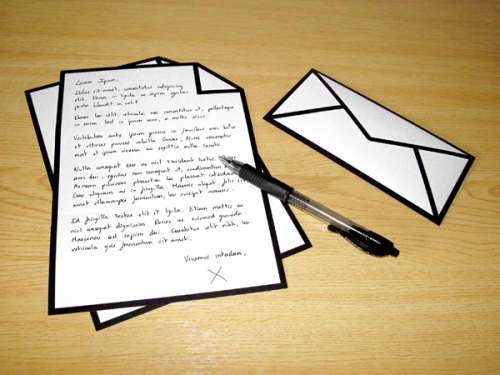 Lorem Ipsum,
Dolor sit amet, consectetur adipiscing
elit. Etiam in ligula ac sapien egestas
porta blandit in velit.
Donec leo velit, vehicula nec consectetur et, pellentesque
in enim. Sed in ipsum sem, a mattis
Vestibulum ante ipsum primis in faucibus orci luctus
et ultrices posuere cubilia Curae;
erat et ipsum aenean ac sagittis nulla iaculis.
Nulla consequat sem ac nisl tincidunt
orci dui, egestas non consequat et, condimentum
Aenean pulvinar pharetra leo placerat interdum.
Cras aliquam mi in fringilla. Mauris aliquet, felis
amet ullamcorper fermentum, leo suscipit mauris.
Id fringilla tortor elit et ligula. Etiam mattis ex
nisl consequat dignissim. Donec ac euismod gravida.
Maecenas sed sapien dui. Curabitur velit nibh, leo
vehicula quis fermentum sit amet.
Vivamus interdum,
X